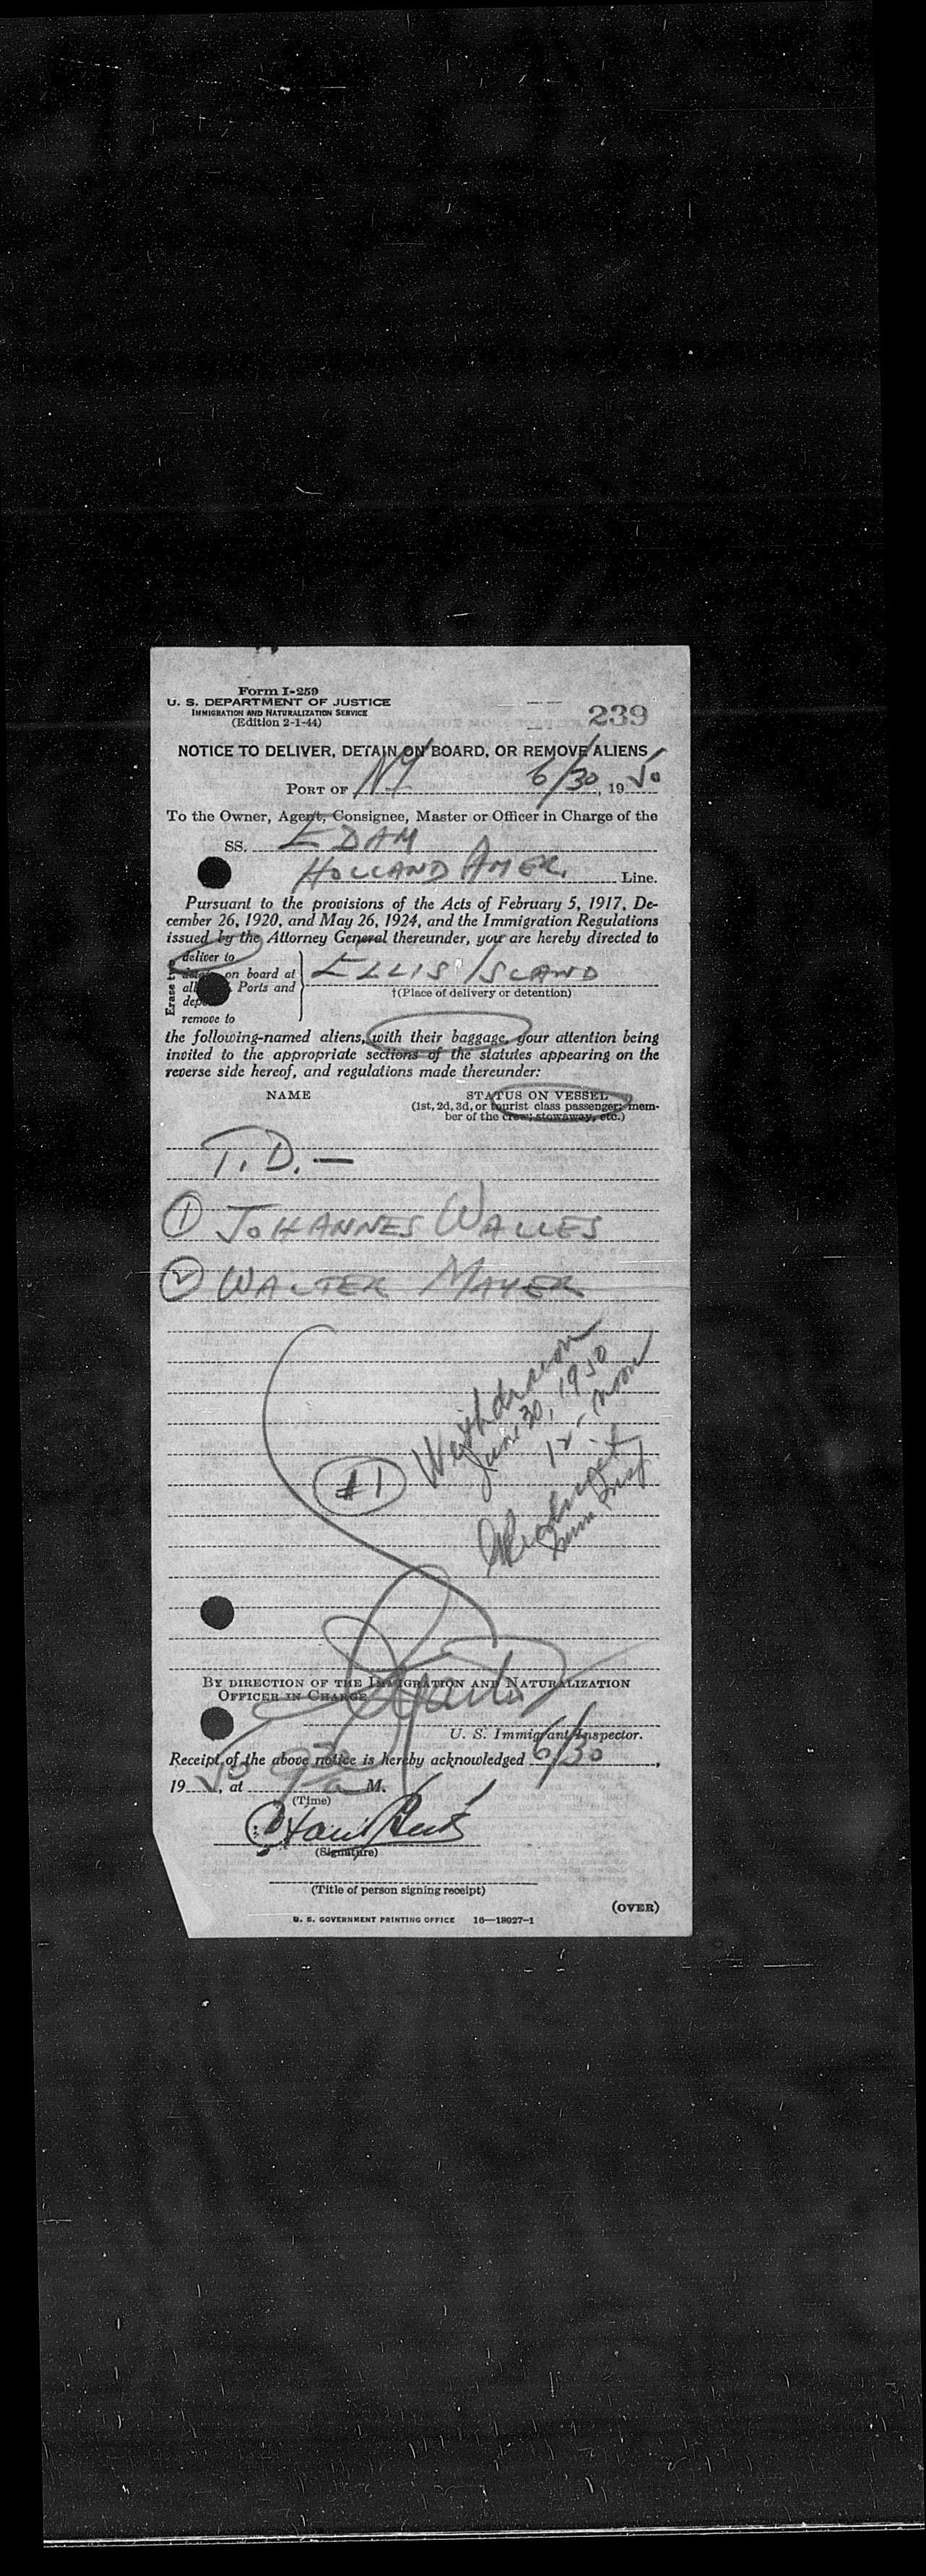 Form I-259
U. S. DEPARTMENT OF JUSTICE
IMMIGRATION AND NATURALIZATION SERVICE
(Edition 2-1-44)
239
NOTICE TO DELIVER, DETAIN ON BOARD, OR REMOVE ALIENS
PORT OF NY 6/30, 1950
To the Owner, Agent, Consignee, Master or Officer in Charge of the
SS. EDAM
HOLLAND AMER. Line.
Pursuant to the provisions of the Acts of February 5, 1917, De-
cember 26, 1920, and May 26, 1924, and the Immigration Regulations
issued by the Attorney General thereunder, you are hereby directed to
Erase two
deliver to
on board at
Ports and
remove to
ELLIS ISLAND
†(Place of delivery or detention)
the following-named aliens, with their baggage, your attention being
invited to the appropriate sections of the statutes appearing on the
reverse side hereof, and regulations made thereunder:
NAME
STATUS ON VESSEL
(1st, 2d, 3d, or tourist class passenger; mem-
ber of the crew; stowaway, etc.)
T. D. —
1 JOHANNES WALLES
2 WALTER MAYER
#1
Withdrawn
June 30, 1950
12 - noon
BY DIRECTION OF THE IMMIGRATION AND NATURALIZATION
OFFICER IN CHARGE
U. S. Immigrant Inspector.
Receipt of the above notice is hereby acknowledged 6/30,
1950, at M.
(Time)
(Signature)
(Title of person signing receipt)
(OVER)
U. S. GOVERNMENT PRINTING OFFICE 16—18027-1